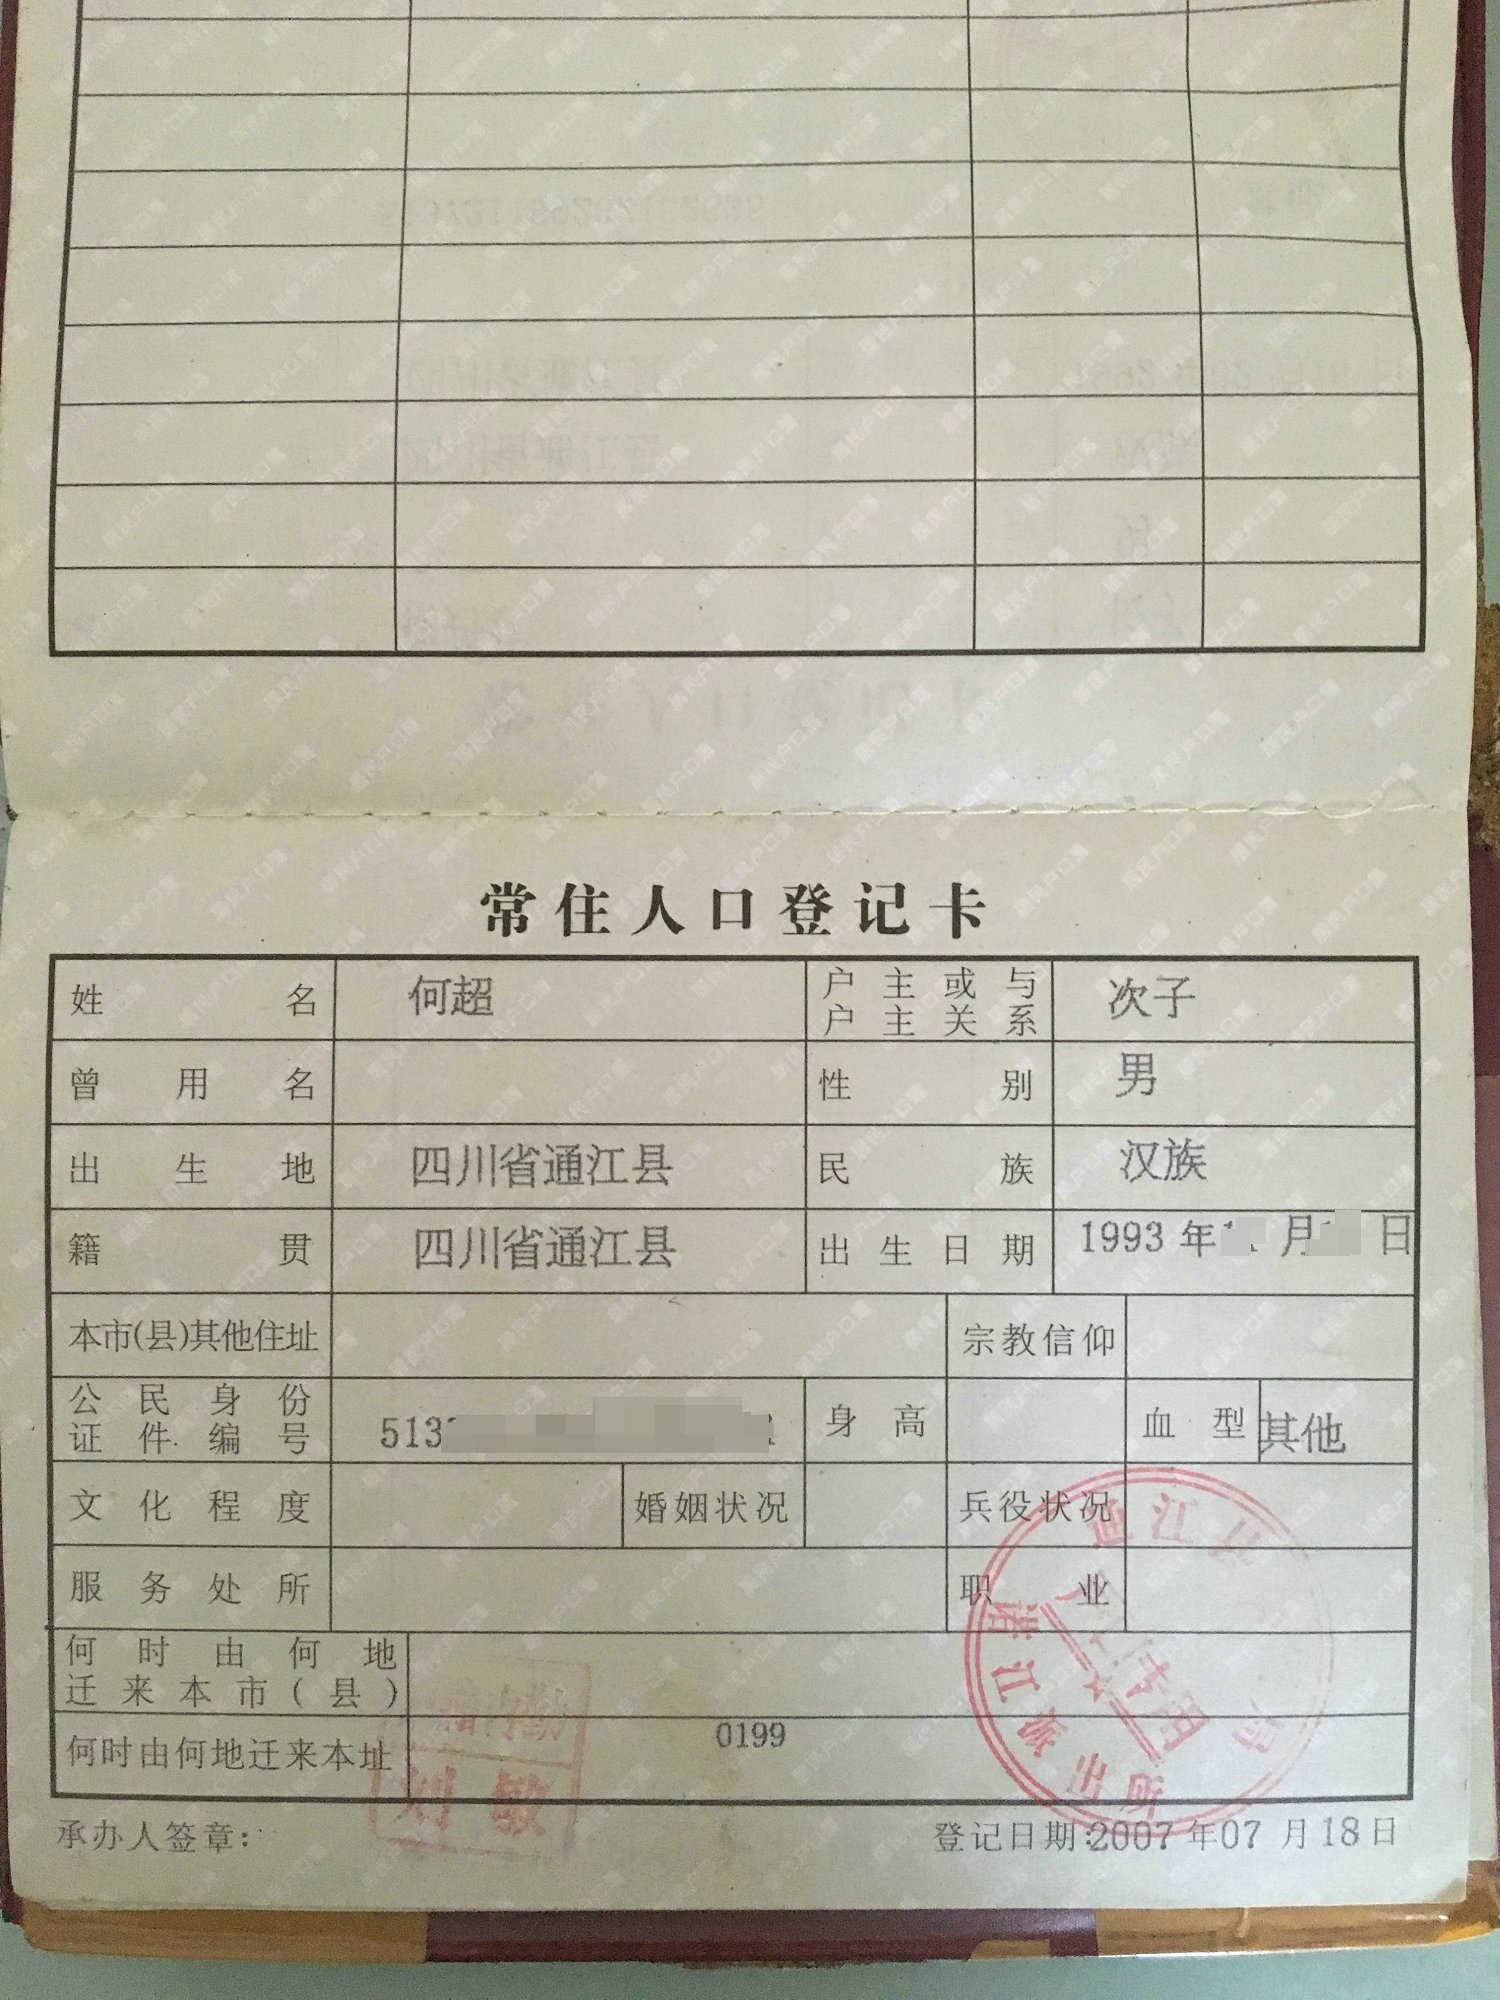 常住人口登记卡
姓名 何超 户主或与户主关系 次子
曾用名 性别 男
出生地 四川省通江县 民族 汉族
籍贯 四川省通江县 出生日期 1993年 月 日
本市(县)其他住址 宗教信仰
公民身份证件编号 513 身高 血型 其他
文化程度 婚姻状况 兵役状况
服务处所 职业
何时由何地迁来本市(县)
何时由何地迁来本址 0199
通江县
诺江派出所
专用
刘敏
承办人签章: 登记日期:2007年07月18日